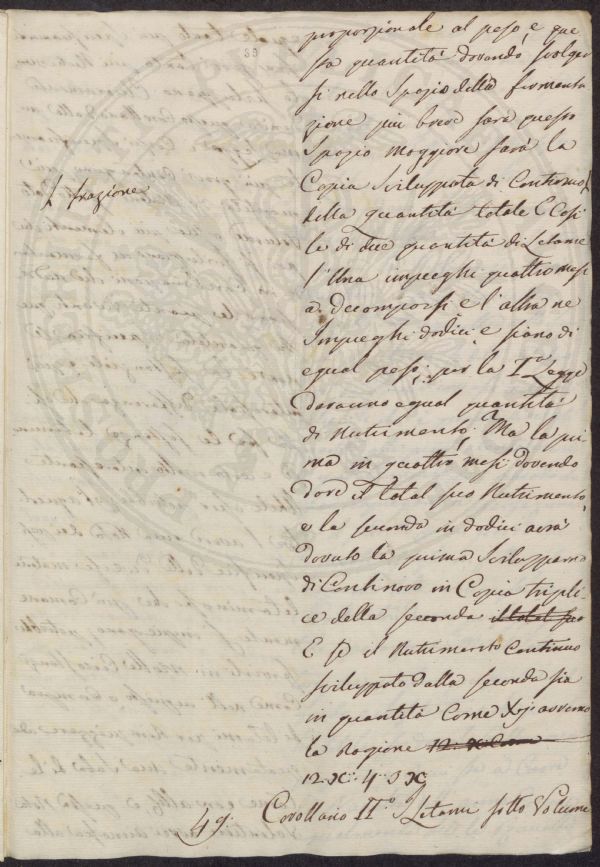 39
proporzionale al peso, e que
sta quantità dovendo svolger
si nello Spazio della fermenta
zione piu breve sarà questo
Spazio maggiore sarà la
Copia Sviluppata di Continuo ƒ
ƒ frazione
della Quantità totale E Così
le di due quantità di Letame
l'Una impieghi quattro mesi
a decomporsi e l'altra ne
Impieghi dodici e siano di
egual peso; per la Iª Legge
daranno egual quantità
di Nutrimento; Ma la pri
ma in quattro mesi dovendo
dare il total suo Nutrimento,
e la seconda in dodici avrà
dovuto la prima Svilupparne
di Continovo in Copia tripli
ce della seconda il total suo
E se il Nutrimento Continuo
sviluppato dalla seconda sia
in quantità Come X; avremo
la Ragione 12: X: Come
12: X: 4: 3X
49. Corollario II.º Letami sotto Volume